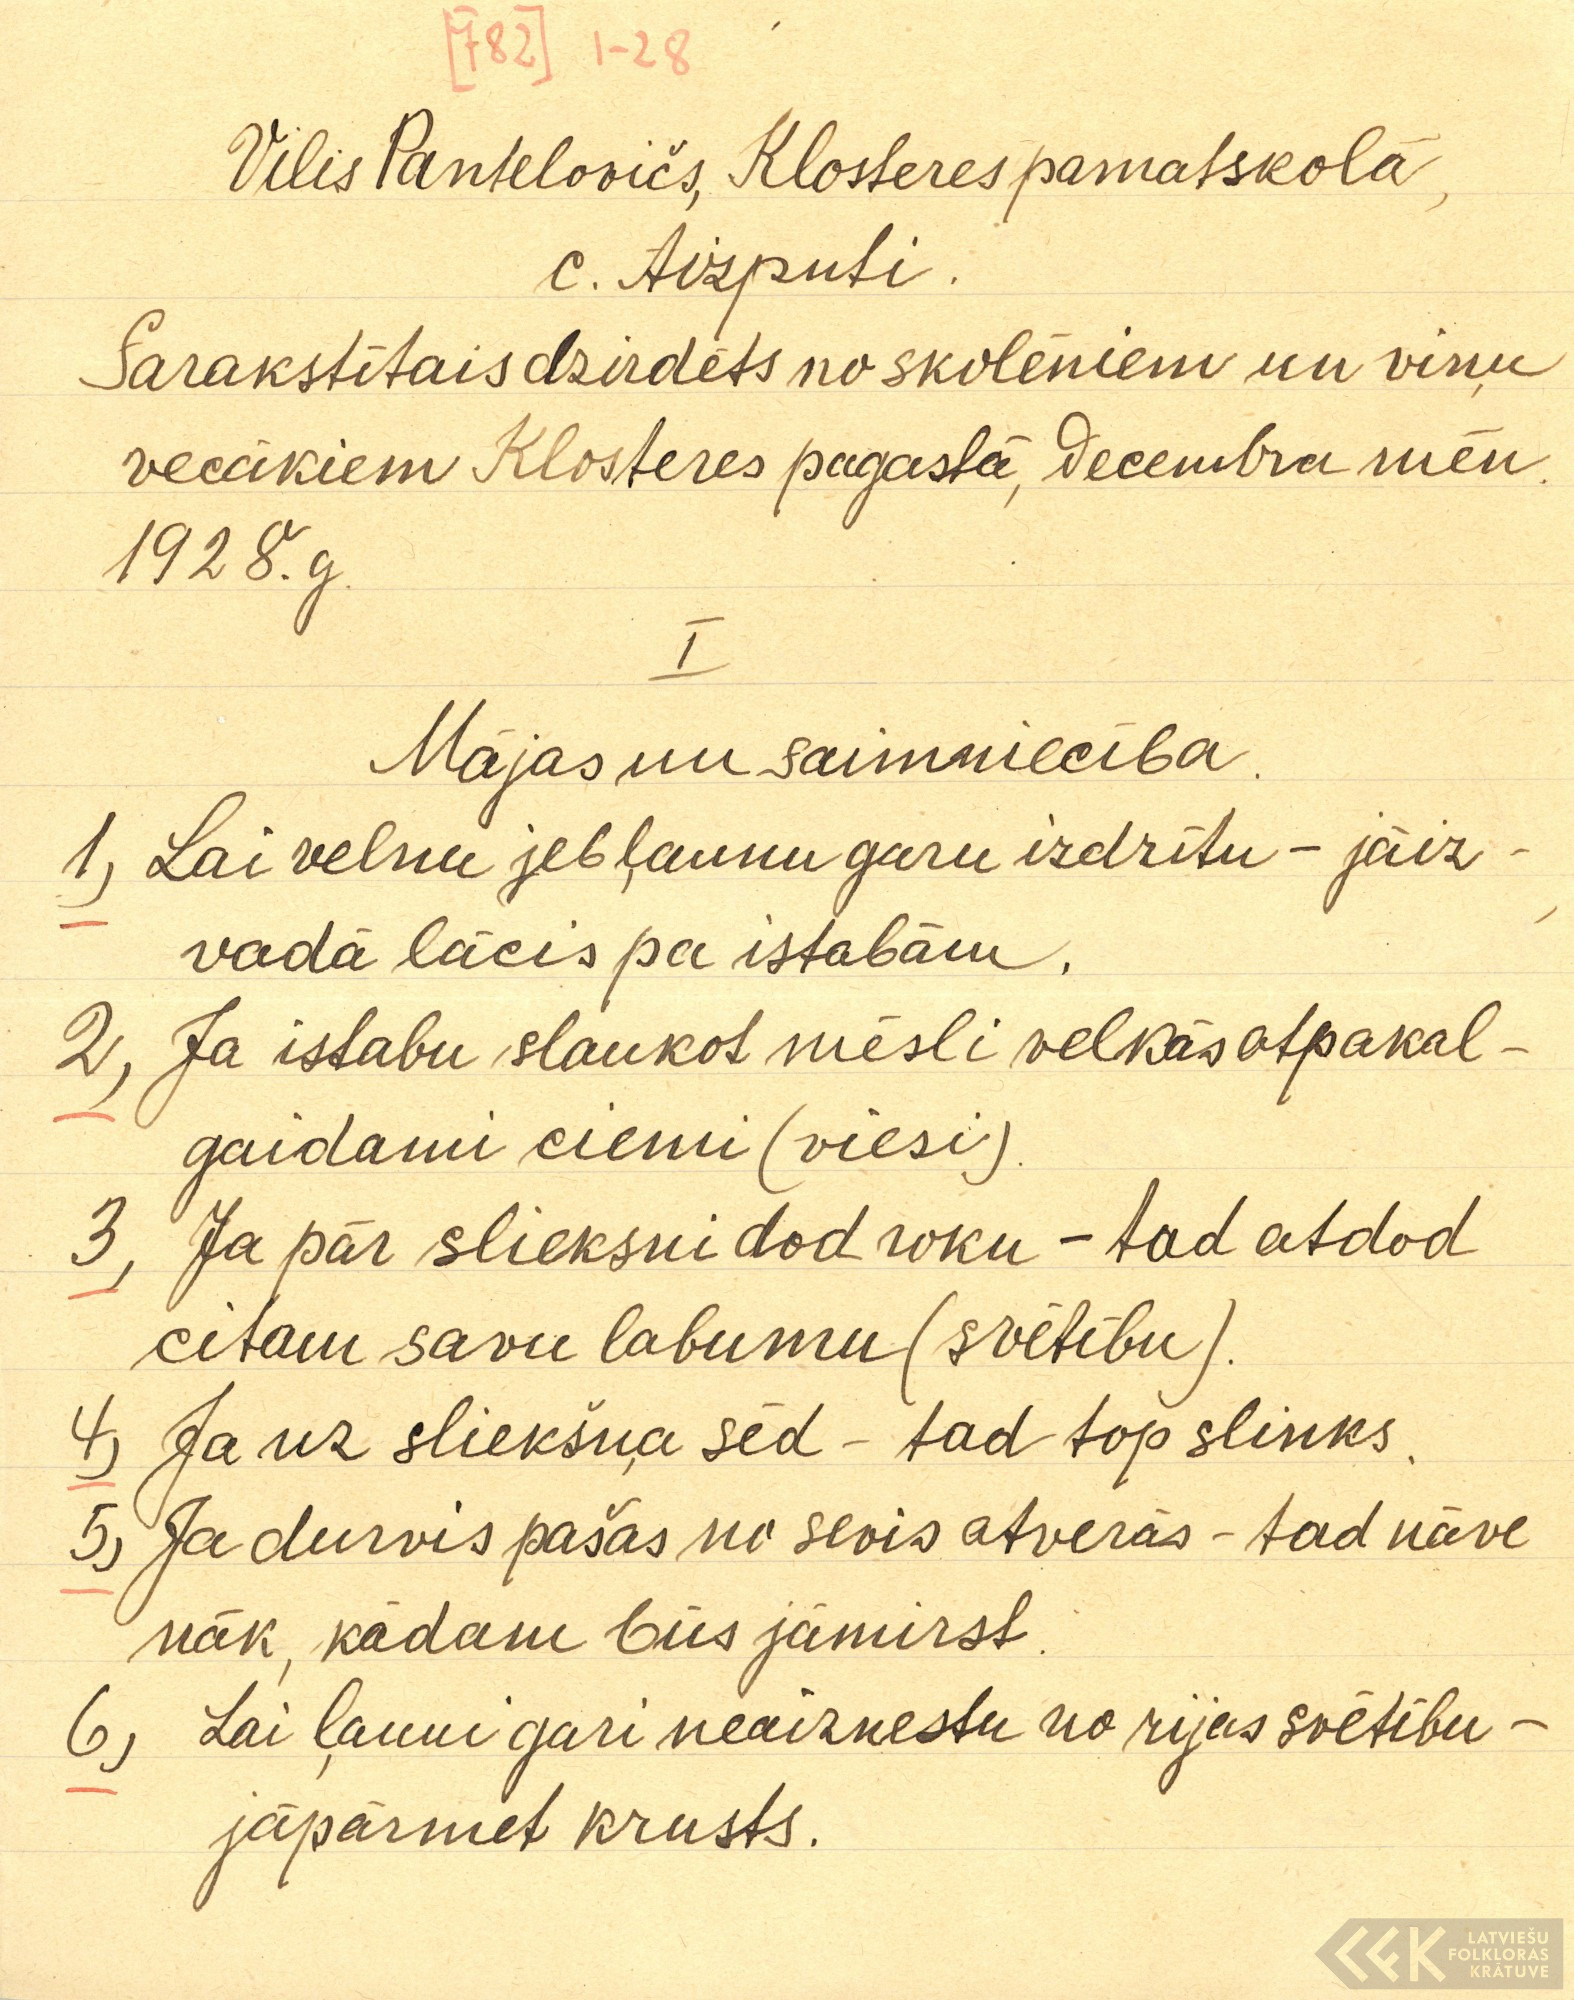 [782] 1-28
Vilis Pantelovičs, Klosteres pamatskolā,
c. Aizputi.
Sarakstītais dzirdēts no skolēniem un viņu
vecākiem Klosteres pagastā, Decembra mēn.
1928. g.
I
Mājas un saimniecība.
1, Lai velnu jeb ļaunu garu izdzītu - jāiz-
vadā lācis pa istabām.
2, Ja istabu slaukot mēsli velkās atpakal -
gaidami ciemi (viesi).
3, Ja pār slieksni dod roku - tad atdod
citam savu labumu (svētību).
4, Ja uz sliekšņa sēd - tad top slinks.
5, Ja durvis pašas no sevis atverās - tad nāve
nāk, kādam būs jāmirst.
6, Lai ļauni gari neaiznestu no rijas svētību -
jāpārmet krusts.
LATVIEŠU
FOLKLORAS
KRĀTUVE